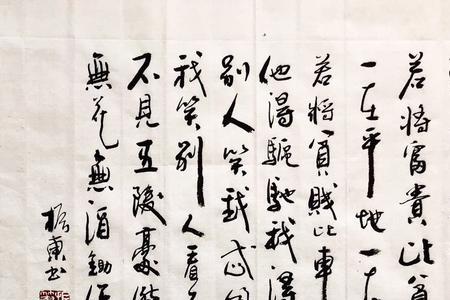 若將富貴比貧
一在平地一在
若將貧賤比車
他得驅馳我得
别人笑我忒
我笑别人看不
不見五陵豪傑
無花無酒鋤作
振東书